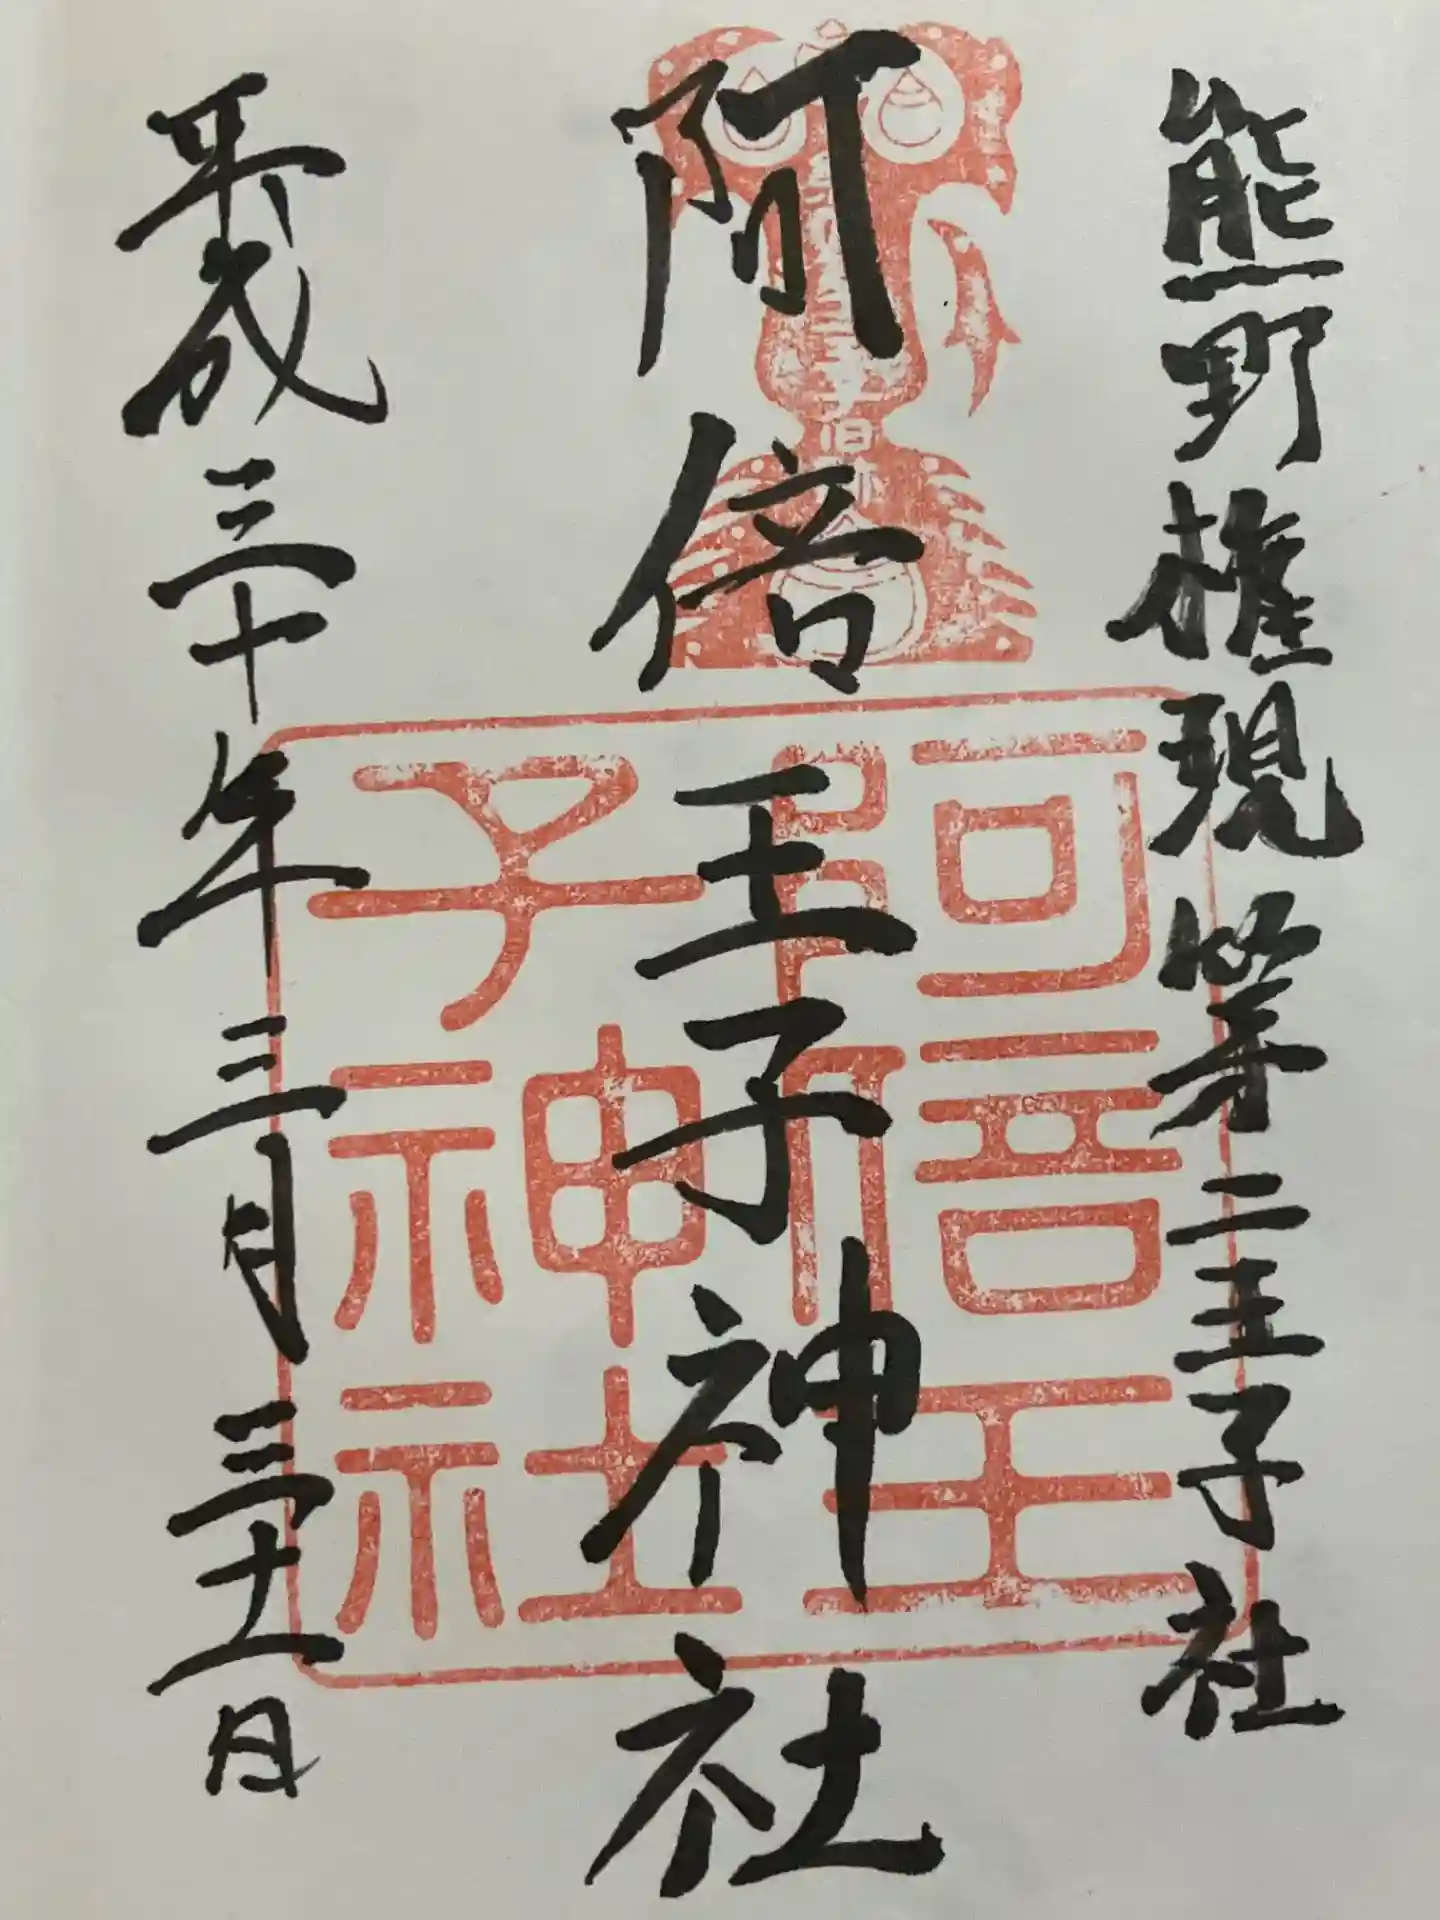 熊野権現第二王子社
阿倍王子神社
平成三十年三月三十一日
阿倍王
子神社
旧